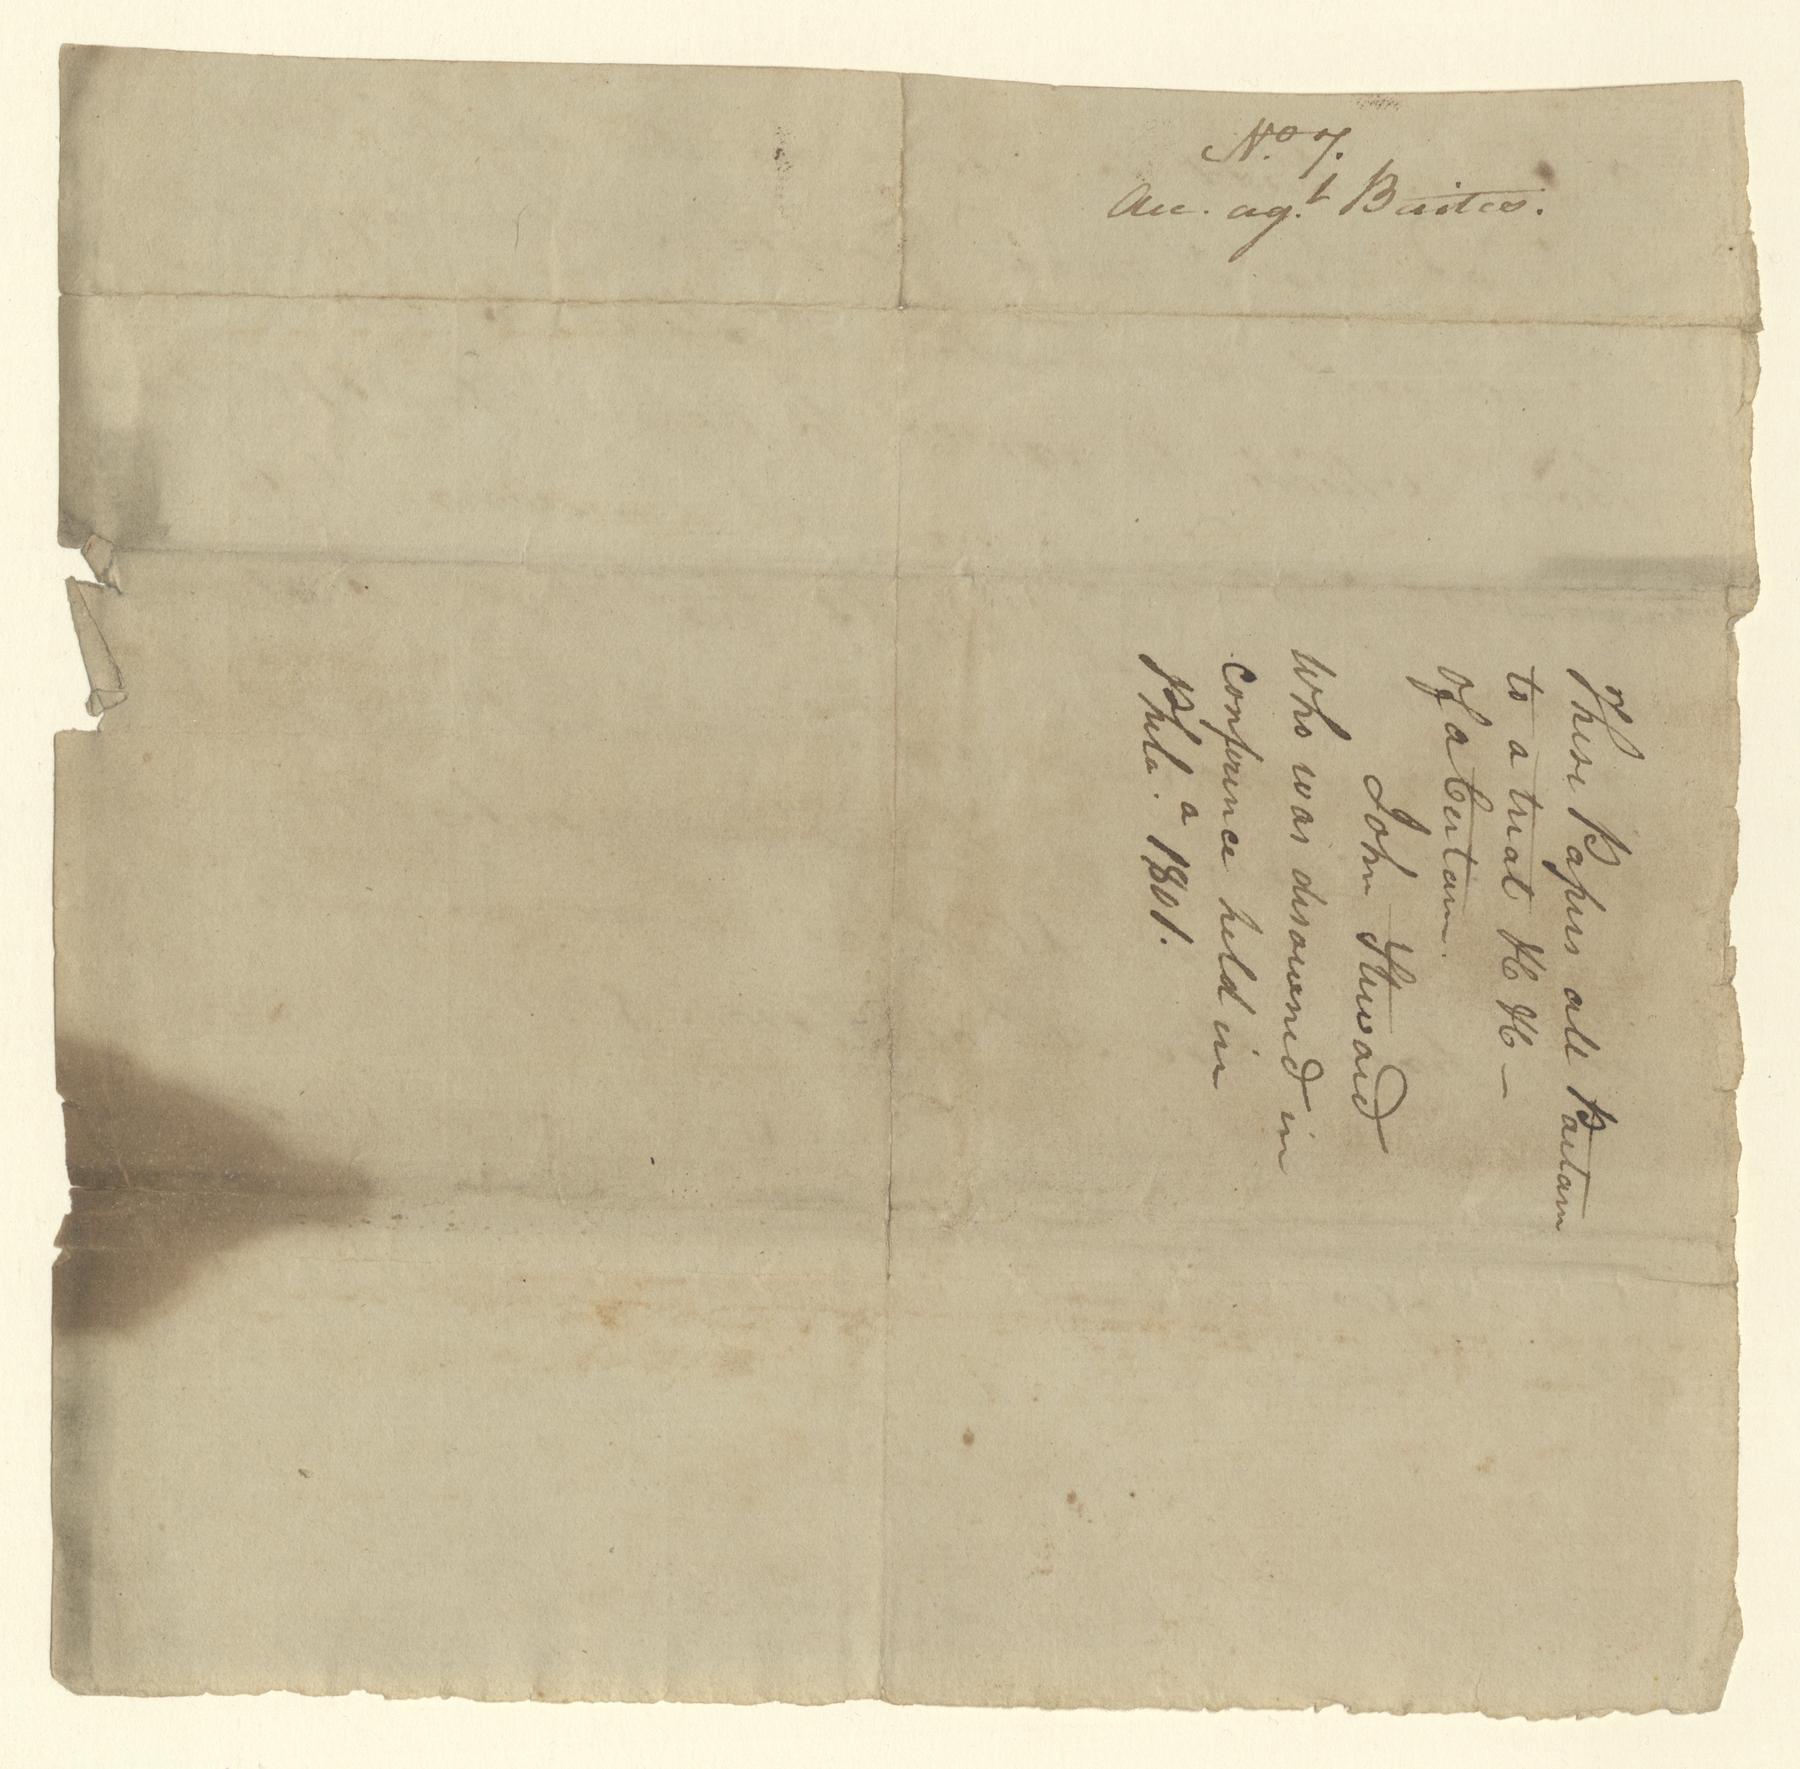 No. 7.
Acc. agt. Baites.
These Papers all Partain
to a trial &c &c —
of a Certain
John Steward
Who was disowened in
Conference held in
Phila. a 1801.